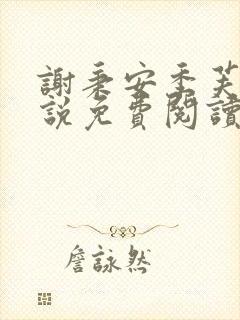 謝秉安季芙
說免費閱讀
詹詠然